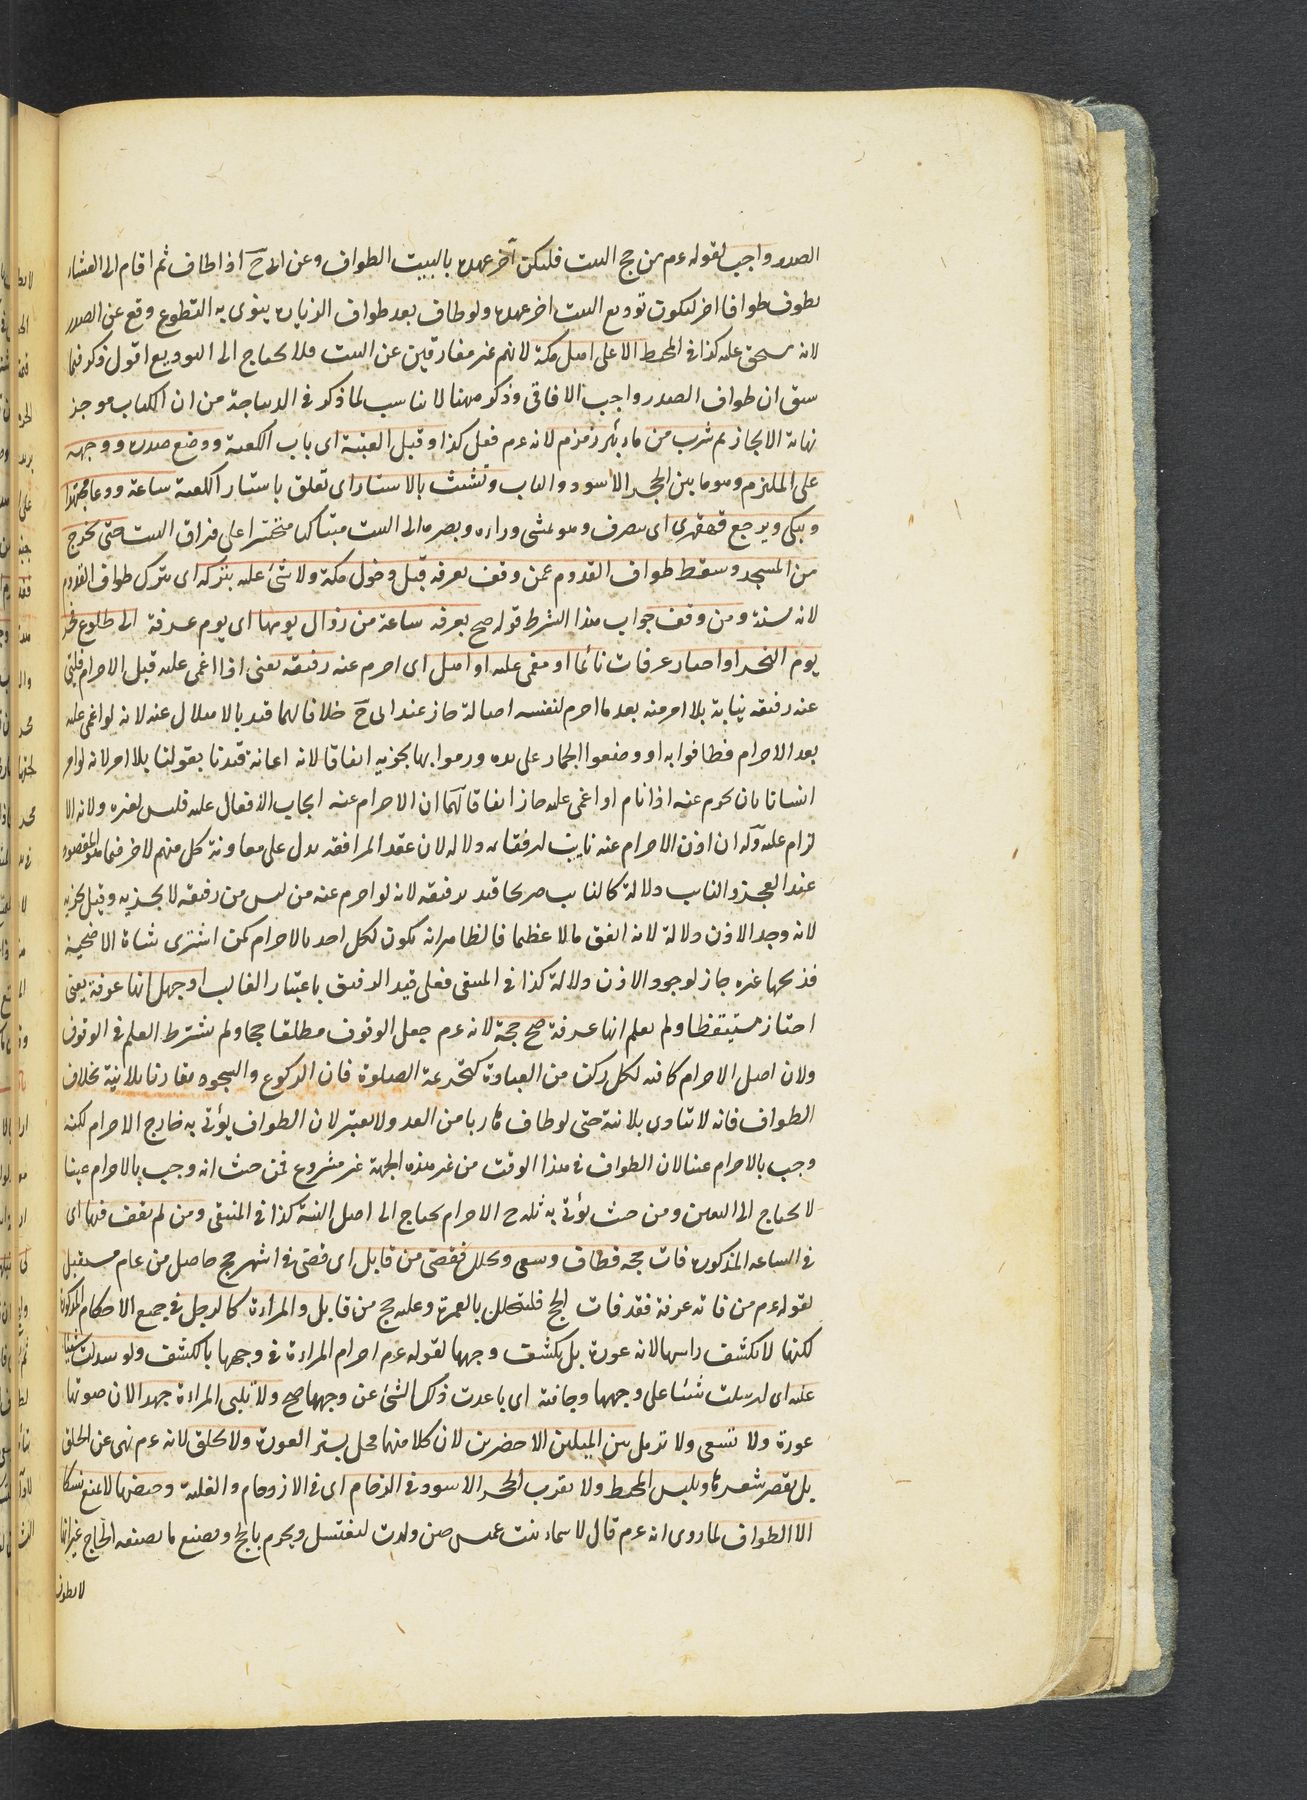 الصدر واجب لقوله عم من حج البيت فليكن آخر عهده بالبيت الطواف وعن ابى ح اذا طاف ثم اقام الى العشاء
يطوف طوافا اخر ليكون توديع البيت اخر عهده ولو طاف بعد طواف الزيارة ينوى به التطوع وقع عن الصدر
لانه يستحق عليه كذا في المحيط الا على اهل مكة لانهم غير مفارقين عن البيت فلا يحتاج الى التوديع اقول ذكر فيما
سبق ان طواف الصدر واجب للافاقى وذكر ههنا لا يناسب لما ذكر في الديباجة من ان الكتاب موجز
نهاية الايجاز ثم شرب من ماء بئر زمزم لانه عم فعل كذا وقبل العتبة اى باب الكعبة ووضع صدره ووجهه
على الملتزم وهو ما بين الحجر الاسود والباب وتشبث بالاستار اى تعلق باستار الكعبة ساعة ودعا مجتهدا
ويبكى ويرجع قهقرى اى ينصرف وهو يمشى وراءه وبصره الى البيت متباكيا متحسرا على فراق البيت حتى يخرج
من المسجد وسقط طواف القدوم عمن وقف بعرفة قبل دخول مكة ولا شئ عليه بتركه اى بترك طواف القدوم
لانه سنة ومن وقف جواب هذا الشرط قوله صح بعرفة ساعة من زوال يومها اى يوم عرفة الى طلوع فجر
يوم النحر او اجتاز عرفات نائما او مغمى عليه او اهل اى احرم عنه رفيقه يعنى اذا اغمى عليه قبل الاحرام فلبى
عنه رفيقه نيابة بلا امر منه بعد ما احرم لنفسه اصالة جاز عند ابى ح خلافا لهما قيد بالاهلال عنه لانه لو اغمى عليه
بعد الاحرام فطافوا به او وضعوا الجمار على يده ورموا بها يجزيه اتفاقا لانه اعانة قيدنا بقولنا بلا امر لانه لو امر
انسانا بان يحرم عنه اذا نام او اغمى عليه جاز اتفاقا لهما ان الاحرام عنه ايجاب الافعال عليه فليس لغيره ولاية الا
لزام عليه وله ان اذن الاحرام عنه ثابت لرفقائه دلالة لان عقد المرافقة يدل على معاونة كل منهم لاخر فيما هو المقصود
عند العجز والثابت دلالة كالثابت صريحا قيد برفيقه لانه لو احرم عنه من ليس من رفيقه لا يجزيه وقيل يجزيه
لانه وجد الاذن دلالة لانه انفق مالا عظيما فالظاهر انه يكون لكل احد بالاحرام كمن اشترى شاة الاضحية
فذبحها غيره جاز لوجود الاذن دلالة كذا في المنتقى فعلى قيد الرفيق باعتبار الغالب او جهل انها عرفة يعنى
اجتاز مستيقظا ولم يعلم انها عرفة صح حجة لانه عم جعل الوقوف مطلقا حجا ولم يشترط العلم في الوقوف
ولان اصل الاحرام كافية لكل ركن من العبادة كتحريمة الصلوة فان الركوع والسجود بقارنا بلا نية بخلاف
الطواف فانه لا يتادى بلا نية حتى لو طاف هاربا من العدو لا يعتبر لان الطواف يؤتى به خارج الاحرام لكنه
وجب بالاحرام عينا لان الطواف في هذا الوقت من غير هذه الجهة غير مشروع فمن حيث انه وجب بالاحرام عينا
لا يحتاج الى التعيين ومن حيث يؤتى به خارج الاحرام يحتاج الى اصل النية كذا في المنتقى ومن لم يقف فيها اى
في الساعة المذكورة فات حجه فطاف وسعى وتحلل فقضى من قابل اى قضى في اشهر حج حاصل من عام مستقبل
لقوله عم من فاته عرفة فقد فات الحج فليتحلل بالعمرة وعليه حج من قابل والمراءة كالرجل في جميع الاحكام المذكورة
لكنها لا تكشف راسها لانه عورة بل تكشف وجهها لقوله عم احرام المراءة في وجهها بالكشف ولو سدلت شيئا
عليه اى ارسلت شيئا على وجهها وجافته اى باعدت ذلك الشئ عن وجهها صح ولا تلبى المراءة جهرا لان صوتها
عورة ولا تسعى ولا ترمل بين الميلين الاخضرين لان كلا منهما محل يستر العورة ولا تحلق لانه عم نهى عن الحلق
بل تقصر شعرها وتلبس المخيط ولا تقرب الحجر الاسود في الزحام اى في الازدحام والغلبة وحيضها لا يمنع نسكا
الا الطواف لما روى انه عم قال لاسماء بنت عميس حين ولدت لتغتسل وتحرم بالحج وتصنع ما يصنعه الحاج غير انها
لا تطوف